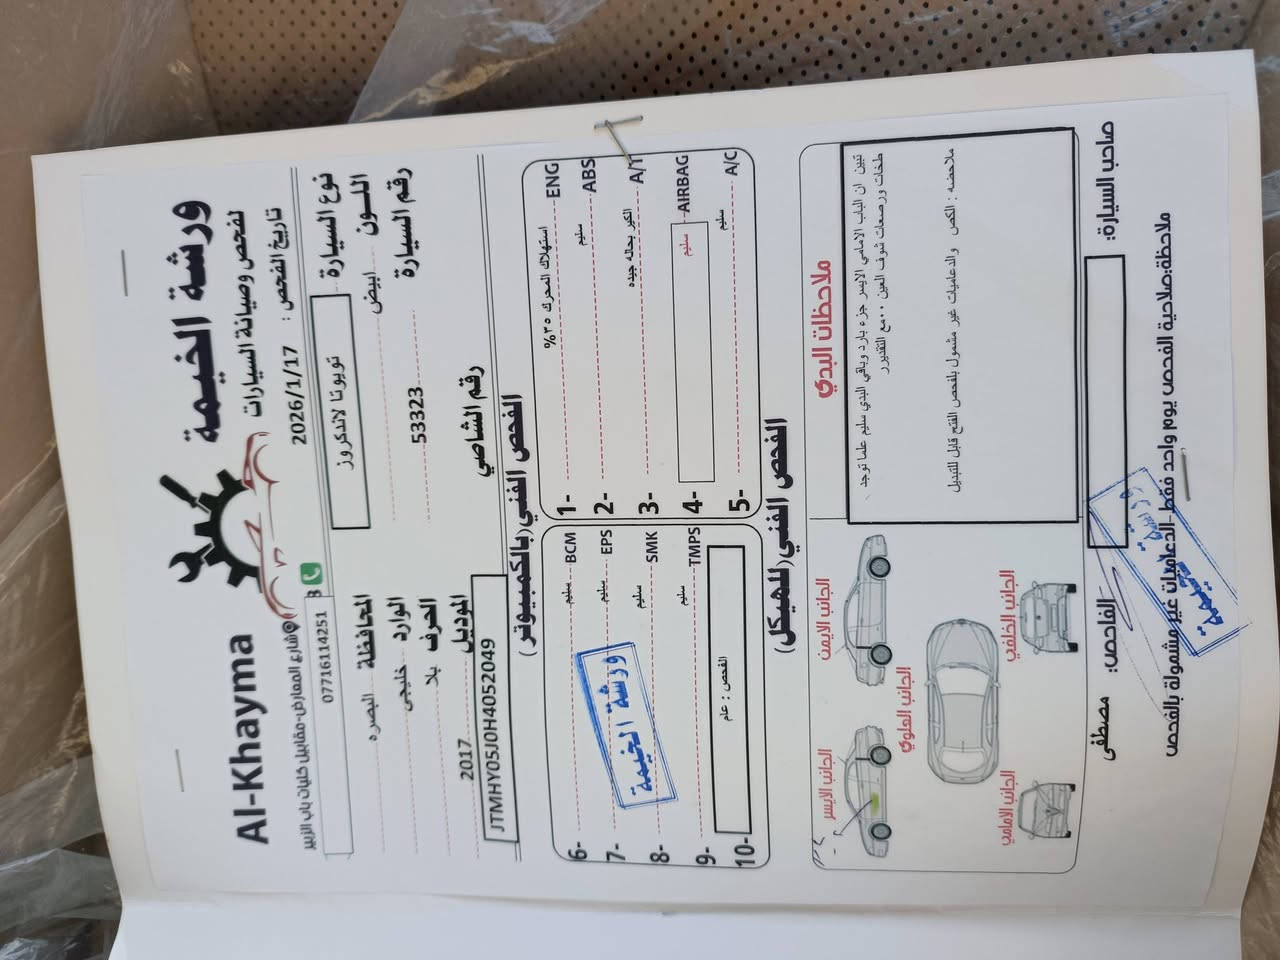 ورشة الخيمة
Al-Khayma
لفحص وصيانة السيارات
شارع المعارض-مقابيل كليات باب الزبير
تاريخ الفحص : 2026/1/17
07716114251
نوع السيارة تويوتا لاندكروز
المحافظة البصره
اللـــون ابيض
الوارد خليجي
رقم السيارة 53323
الحرف بلا
الموديل 2017
رقم الشاصي JTMHY05J0H4052049
الفحص الفني(بالكمبيوتر)
1- استهلاك المحرك ٣٥% ENG
2- سليم ABS
3- الكير بحاله جيده A/T
4- سليم AIRBAG
5- سليم A/C
6- سليم BCM
7- سليم EPS
8- سليم SMK
9- سليم TMPS
10- الفحص : عام
ورشة الخيمة
الفحص الفني(للهيكل)
ملاحظات البدي
تبين ان الباب الامامي الايسر جزء بارد وباقي البدي سليم علما توجد
طخات ورصعات شوف العين ٠٠مع التقديرر
ملاحضه : الكص والدعاميات غير مشمول بلفحص الفتح قابل للتبديل
الجانب الايمن
الجانب الايسر
الجانب العلوي
الجانب الخلفي
الجانب الامامي
صاحب السيارة:
الفاحص: مصطفى
ملاحظة:صلاحية الفحص يوم واحد فقط-الدعاميات غير مشمولة بالفحص
ورشة